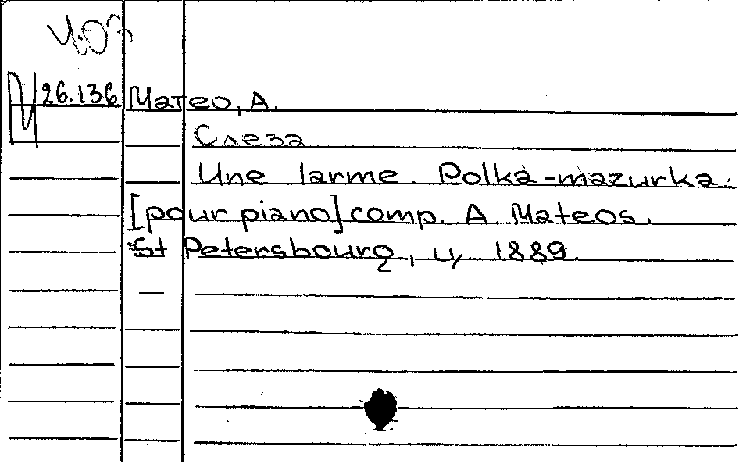 М 26.136 Матео, А.
Слеза
Une larme. Polka-mazurka.
[pour piano] comp. A Mateos.
St Petersbourg, ц 1889.